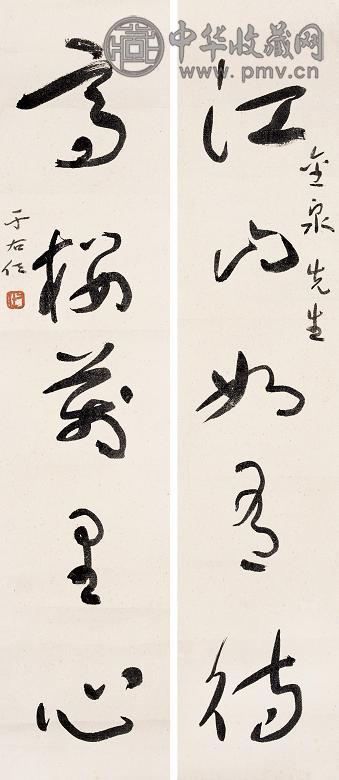 中华收藏网
www.pmv.cn
金泉先生
江山如有待
高樓萬里心
于右任